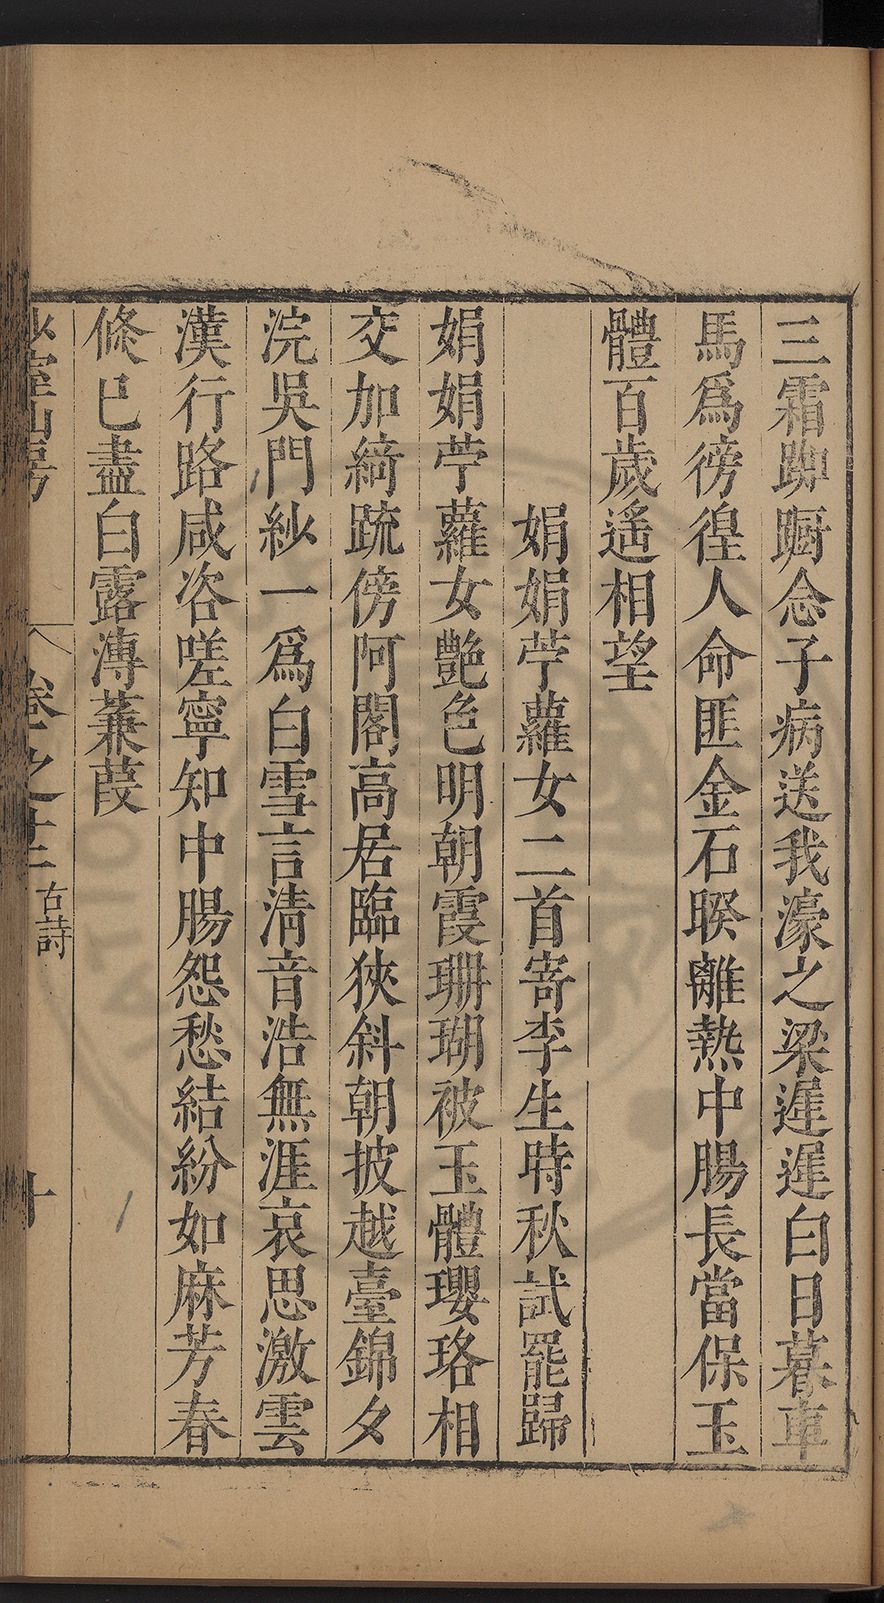 三霜踟躕念子病送我濠之梁遲遲白日暮車
馬爲徬徨人命匪金石睽離熱中腸長當保玉
體百歲遙相望
娟娟苧蘿女二首寄李生時秋試罷歸
娟娟苧蘿女艷色明朝霞珊瑚被玉體瓔珞相
交加綺疏傍阿閣高居臨狹斜朝披越臺錦夕
浣吳門紗一爲白雪言淸音浩無涯哀思激雲
漢行路咸咨嗟寧知中腸怨愁結紛如麻芳春
倏已盡白露漙蒹葭
室山房
卷之十三 古詩
十